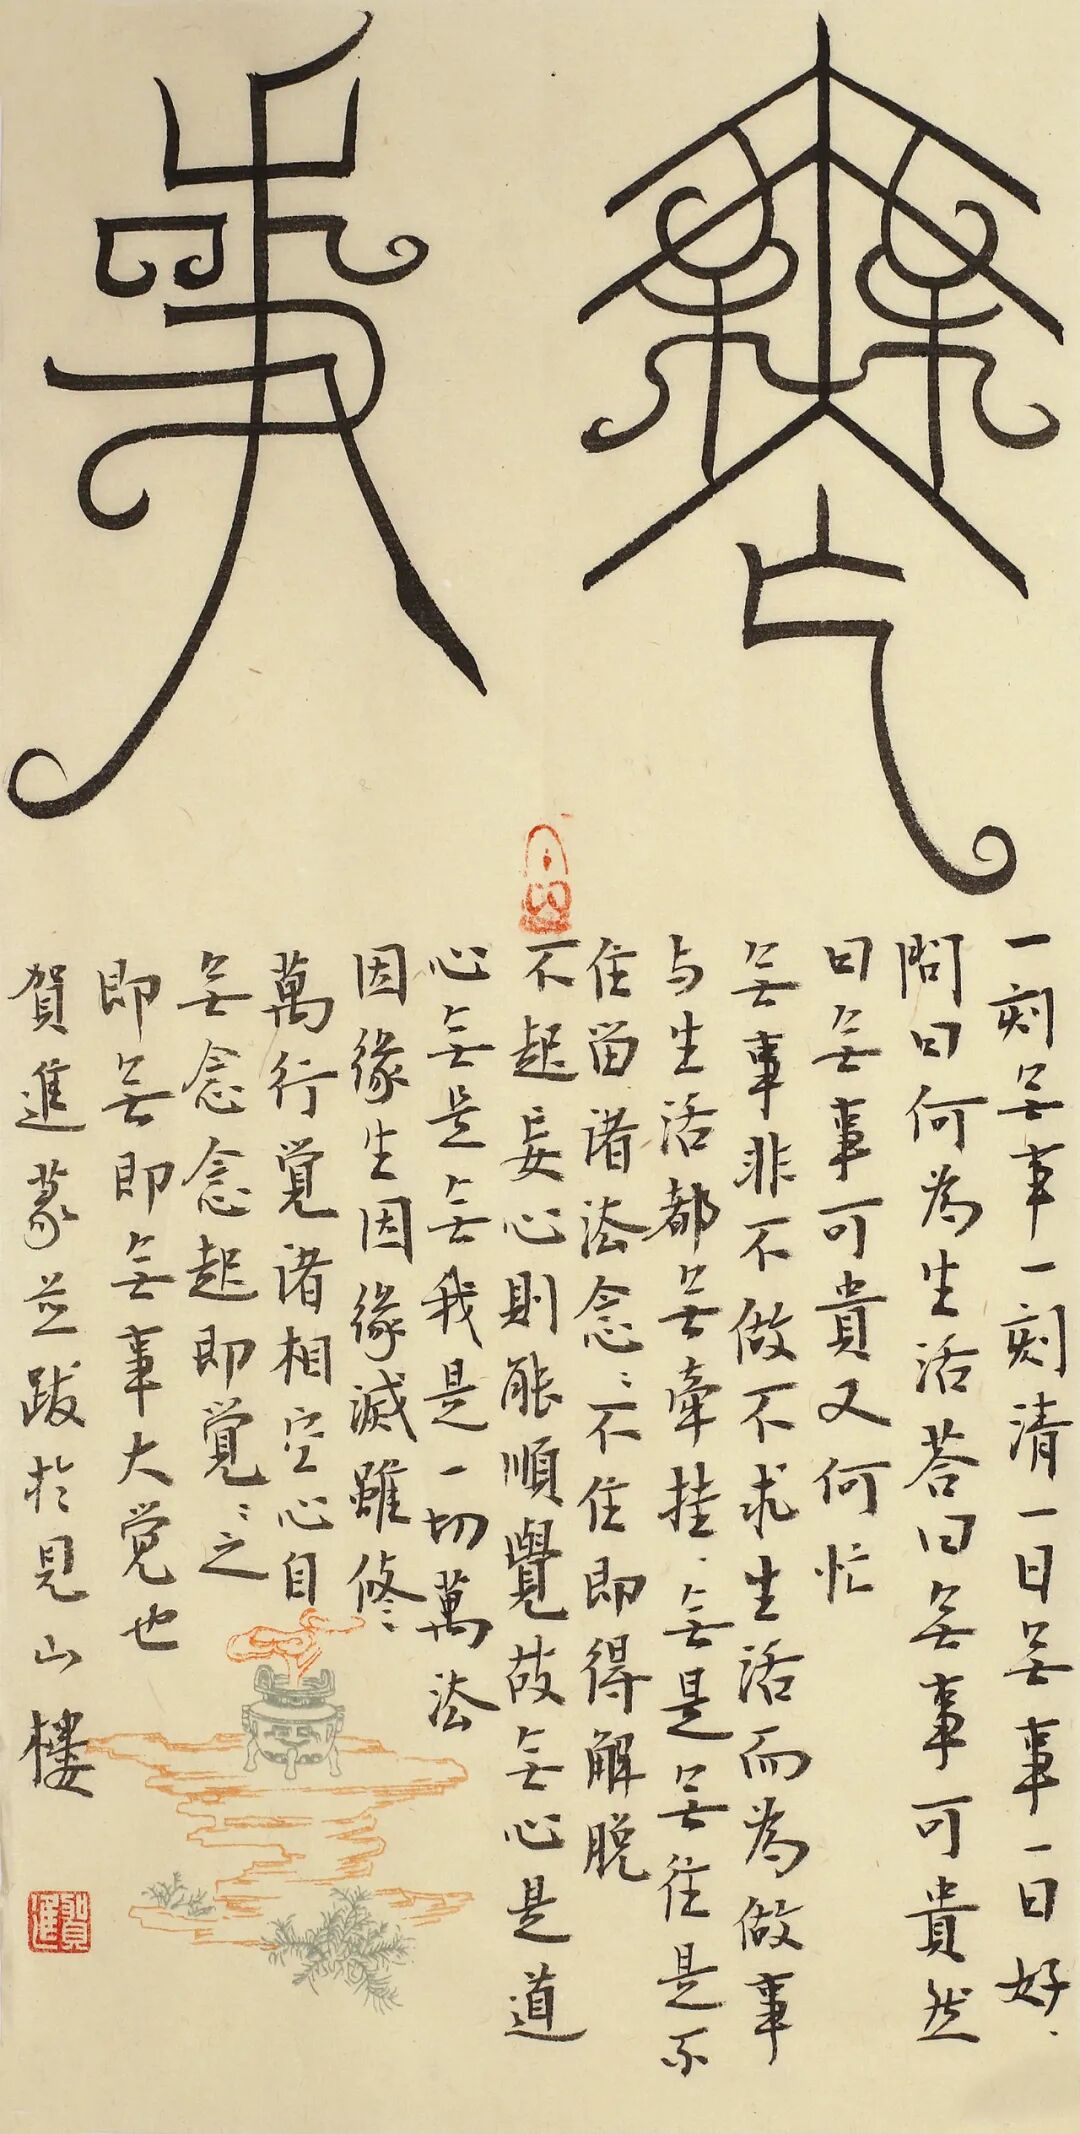 無事
一刻無事一刻清一日無事一日好、
問曰何為生活荅曰無事可貴然
曰無事可貴又何忙
無事非不做不求生活而為做事
与生活都無牽挂、無是無住是不
住留诸法念〻不住即得解脫
不起妄心則能順覺故無心是道
心無是無我是一切萬法
因緣生因緣滅雖修〻
萬行覚诸相空心自
無念念起即覚〻之
即無即無事大覚也
賀進篆並跋於見山樓
賀進